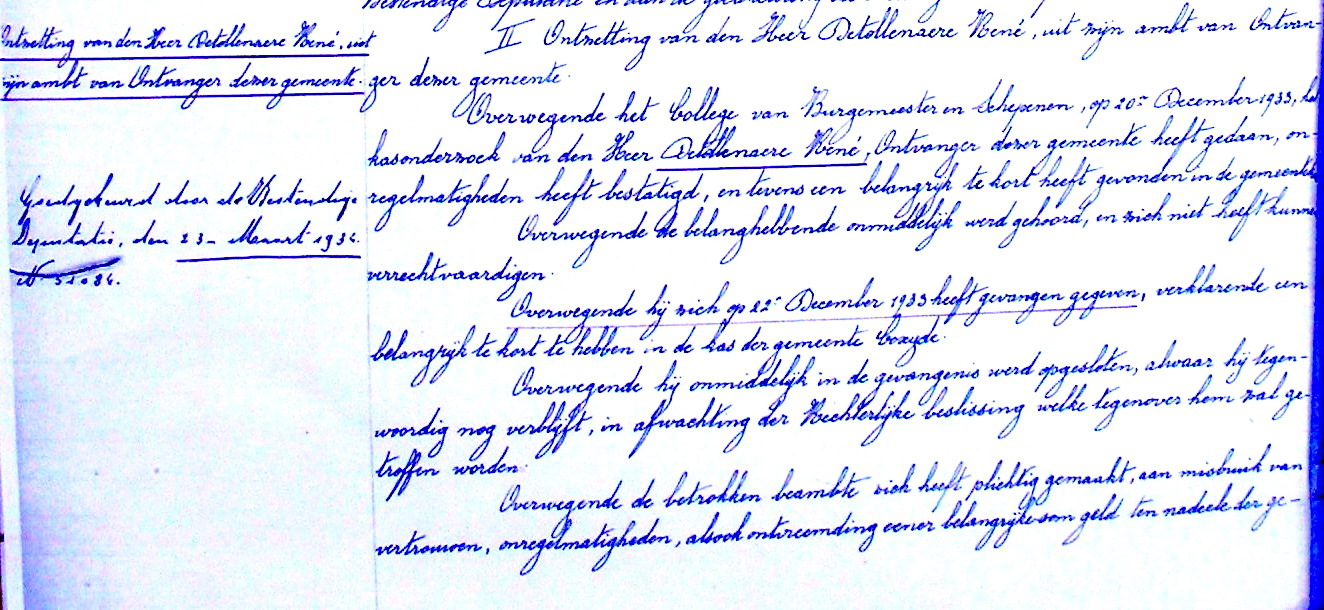 Bestendige Deputatie en aan de
Ontzetting van den Heer Detollenaere René, uit
zijn ambt van Ontvanger dezer gemeente.
Goedgekeurd door de Bestendige
Deputatie, den 23 - Maart 1934.
N. 51084.
II Ontzetting van den Heer Detollenaere René, uit zijn ambt van Ontvan-
ger dezer gemeente.
Overwegende het College van Burgemeester en Schepenen, op 20n December 1933, het
kasonderzoek van den Heer Detollenaere René, Ontvanger dezer gemeente heeft gedaan, on-
regelmatigheden heeft bestatigd, en tevens een belangrijk te kort heeft gevonden in de gemeente
Overwegende de belanghebbende onmiddelijk werd gehoord, en zich niet heeft kunnen
verrechtvaardigen.
Overwegende hij zich op 22n December 1933 heeft gevangen gegeven, verklarende een
belangrijk te kort te hebben in de kas der gemeente Coxyde.
Overwegende hij onmiddelijk in de gevangenis werd opgesloten, alwaar hij tegen-
woordig nog verblijft, in afwachting der Rechterlijke beslissing welke tegenover hem zal ge-
troffen worden.
Overwegende de betrokken beambte zich heeft plichtig gemaakt, aan misbruik van
vertrouwen, onregelmatigheden, alsook ontvreemding eener belangrijke som geld ten nadeele der ge-